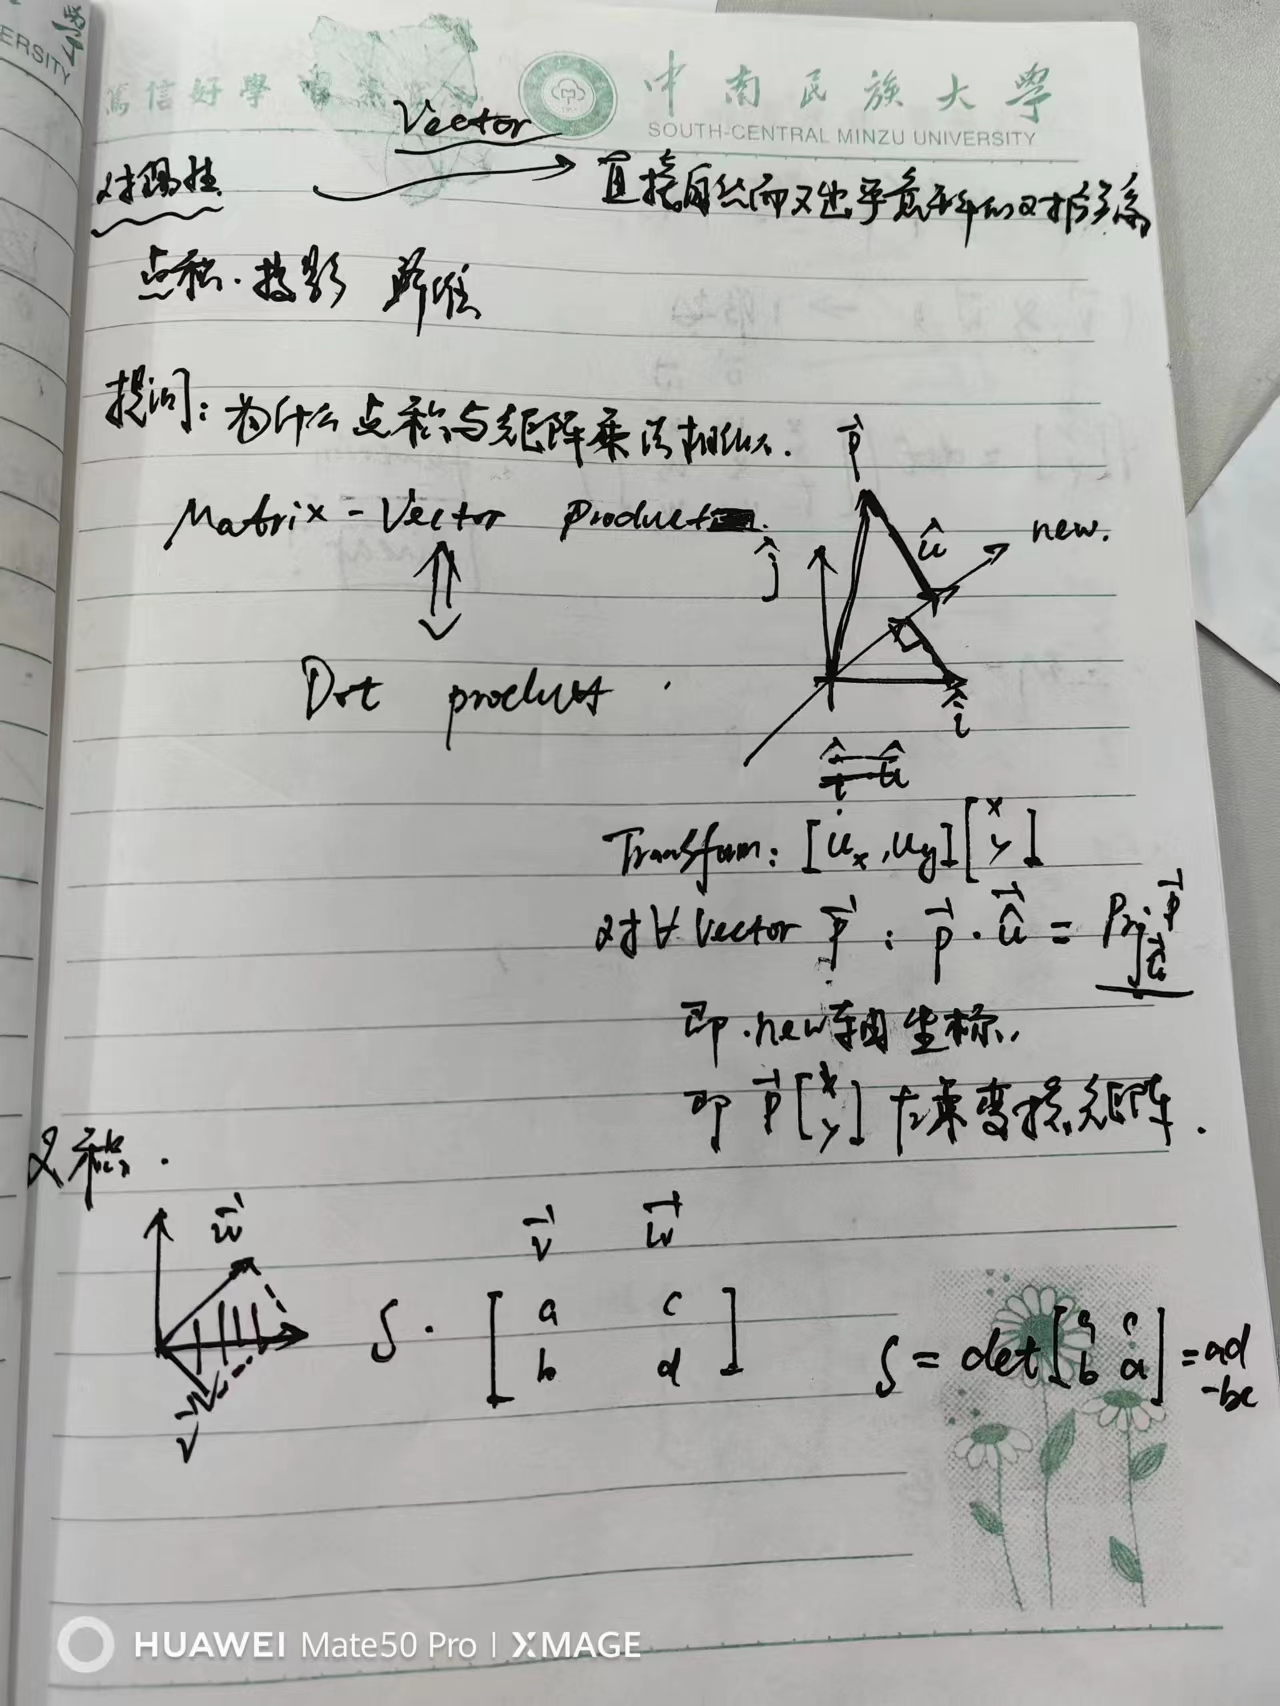 ERSITY
篤信好學
中南民族大學
SOUTH-CENTRAL MINZU UNIVERSITY
Vector
对偶性 → 直接自然而又出乎意料的对应关系
点积·投影 降维
提问：为什么点积与矩阵乘法相似.
Matrix - Vector Product
Dot product
p⃗
ĵ
û
new.
î
î û
Transform: [uₓ, u_y] [x y]
对∀ Vector p⃗ : p⃗ · û = Prj_u⃗ p⃗
即 new轴坐标.
即 p⃗ [x y] 左乘变换矩阵.
叉积.
w⃗
v⃗
v⃗ w⃗
S. [a c
b d]
S = det [a c
b d] = ad
-bc
HUAWEI Mate50 Pro | XMAGE